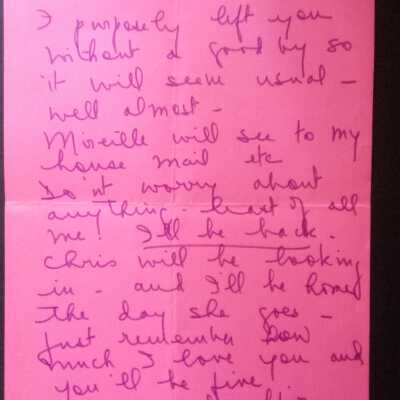 I purposely left you
without a good by so
it will seem usual —
well almost —
Mireille will see to my
house mail etc
Do'nt worry about
anything. least of all
me! I'll be back.
Chris will be looking
in - and I'll be home
the day she goes —
Just remember how
much I love you and
you'll be fine.